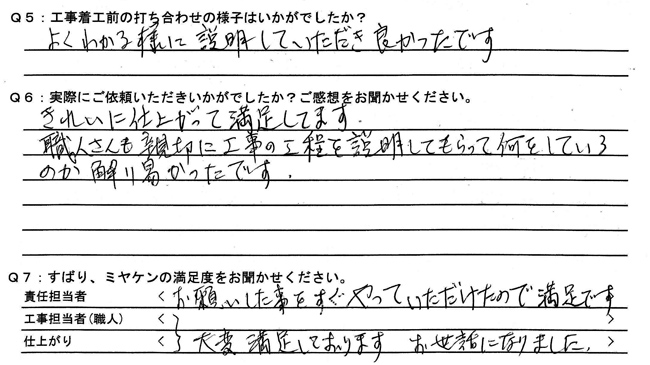 Q5：工事着工前の打ち合わせの様子はいかがでしたか？
よくわかる様に説明していただき良かったです
Q6：実際にご依頼いただきいかがでしたか？ご感想をお聞かせください。
きれいに仕上がって満足してます.
職人さんも親切に工事の工程を説明してもらって何をしている
のか解り易かったです.
Q7：ずばり、ミヤケンの満足度をお聞かせください。
責任担当者 < お願いした事をすぐやっていただけたので満足です
工事担当者(職人) < >
仕上がり < 大変満足しております お世話になりました. >